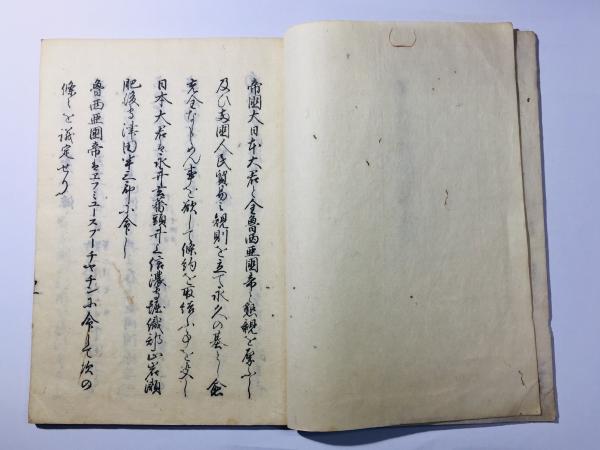 帝國大日本大君と全魯西亜國帝と懇親を厚ふし
及ひ両國人民貿易之規則を立て永久の基とし愈
安全ならしめん事を欲して條約を取結ふ事を決し
日本大君は永井玄蕃頭井上信濃守堀織部正岩瀬
肥後守津田半三郎に命し
魯西亜國帝はエフミユースプーチヤチンに命して次の
條々を議定せり